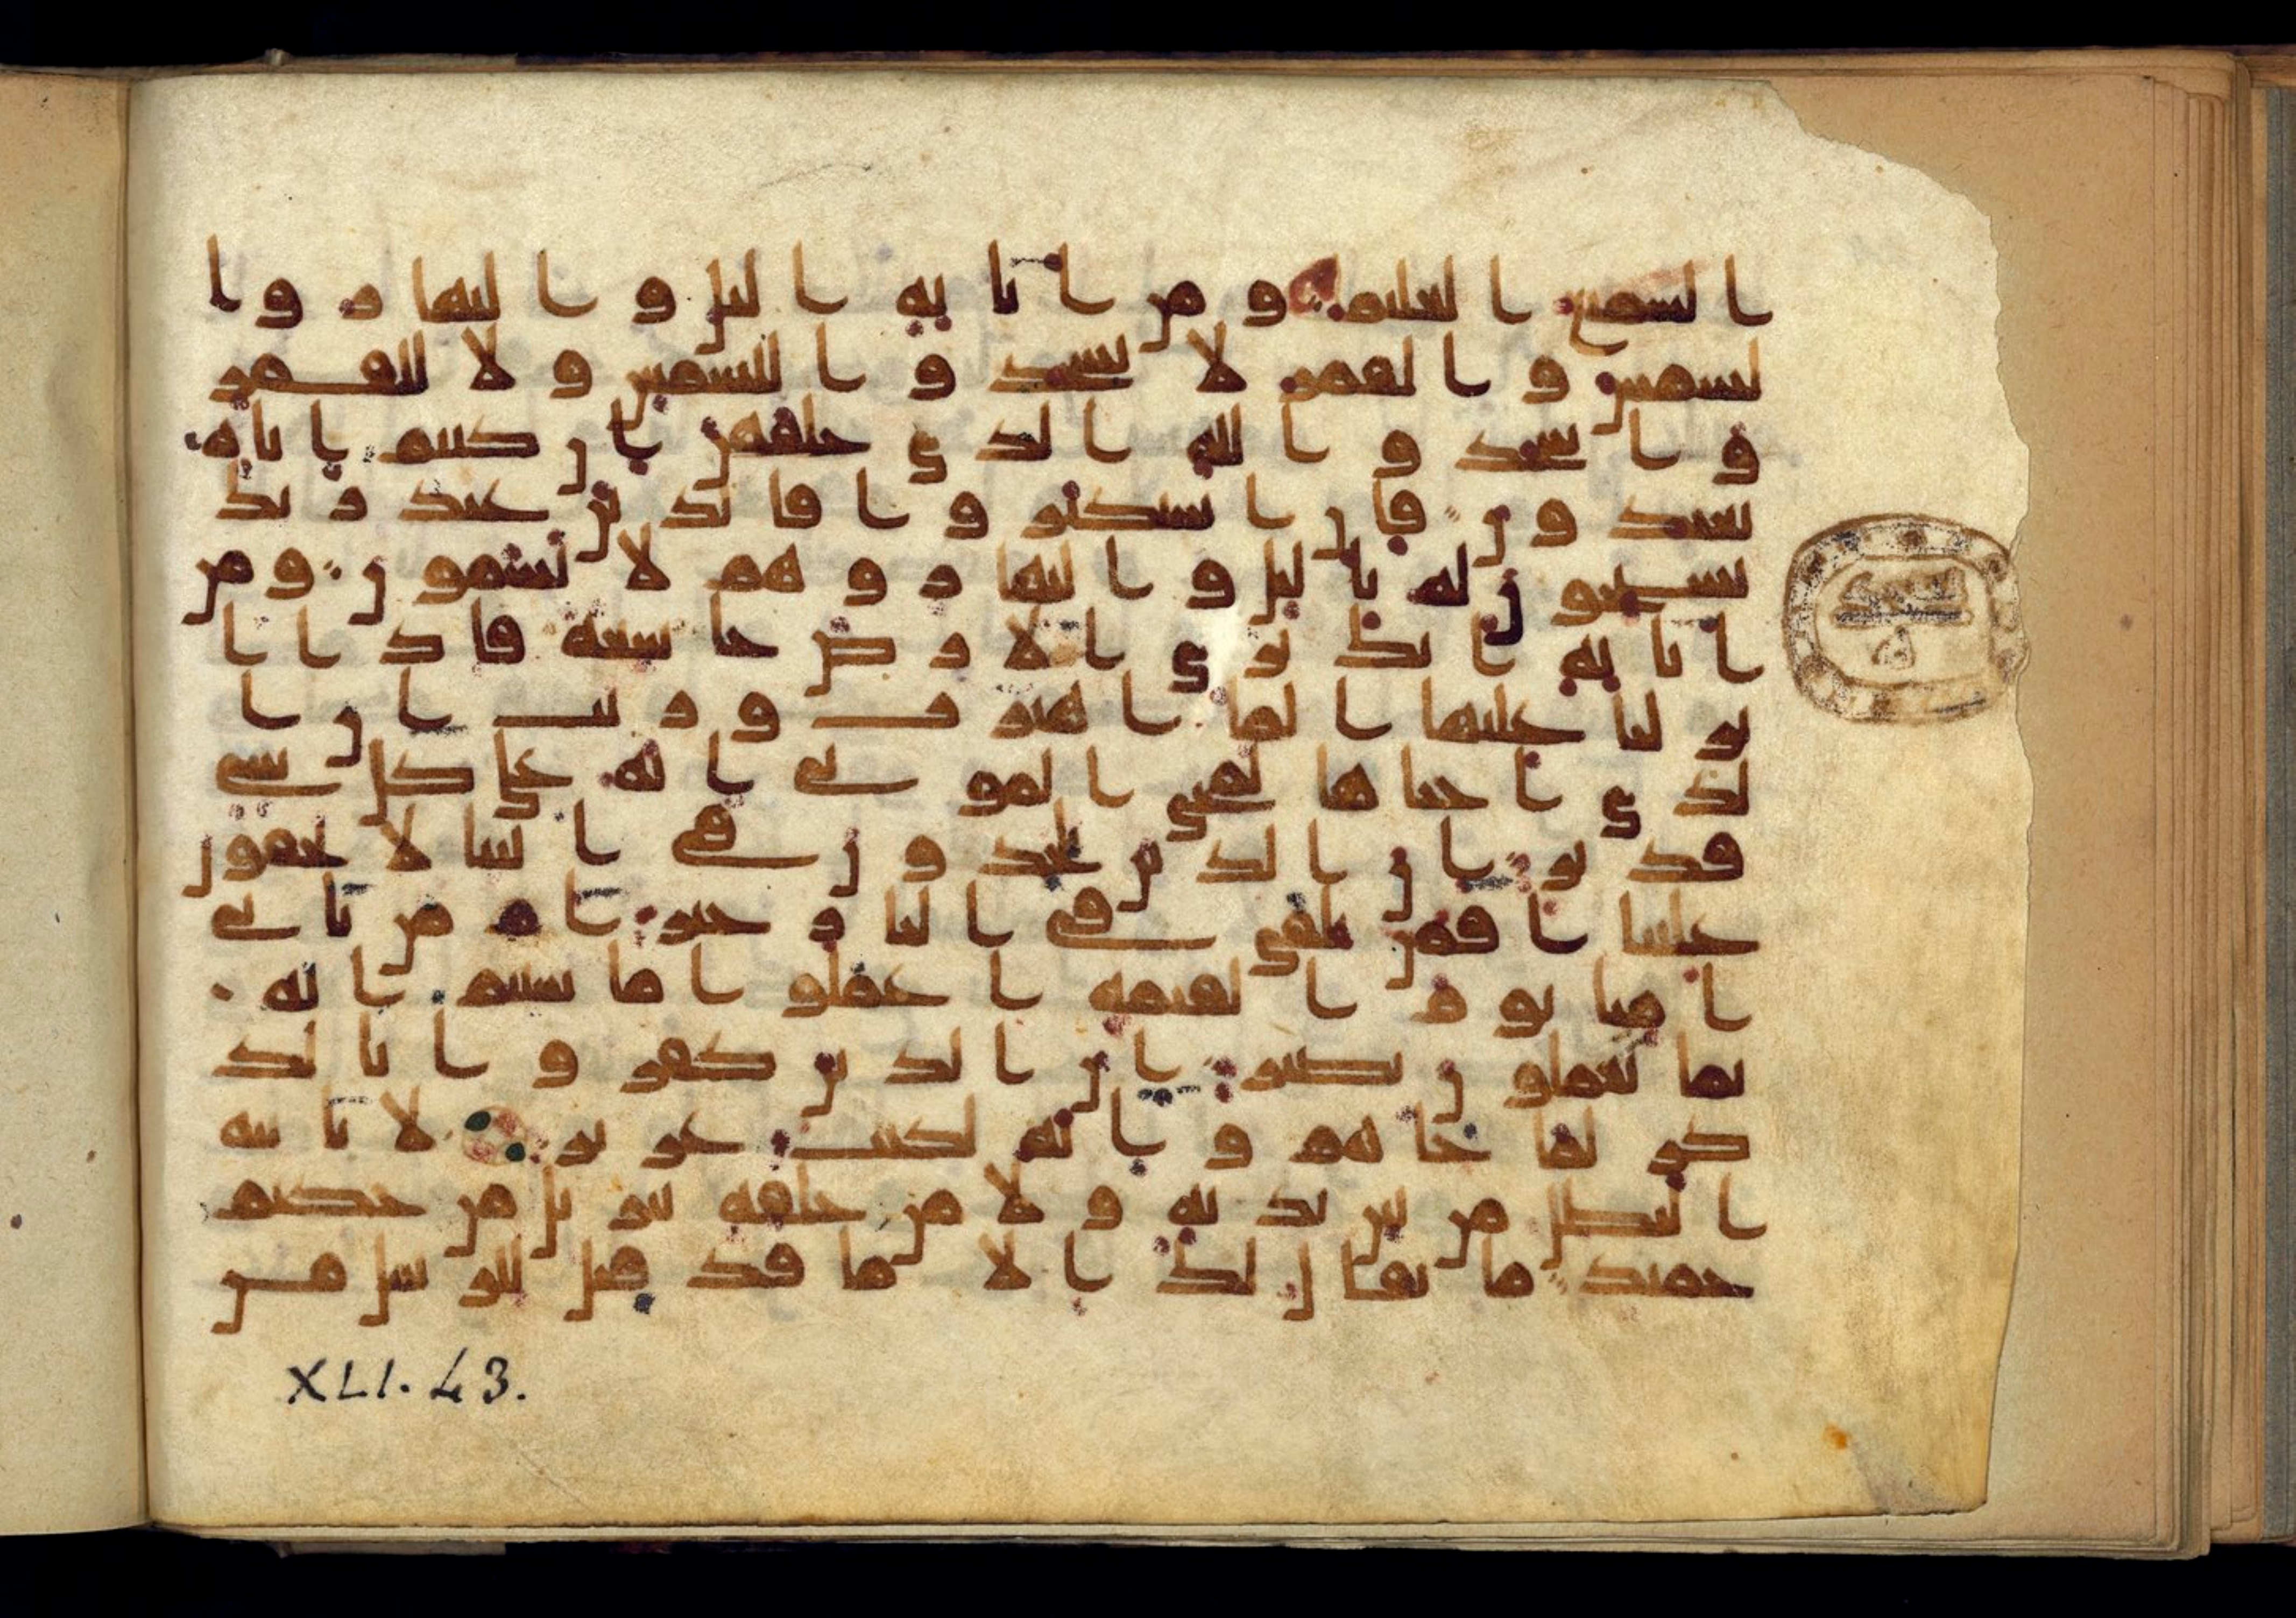 السميع العليم ومن اياته اليل والنهار وا
لشمس والقمر لا تسجدوا للشمس ولا للقمر
واسجدوا لله الذي خلقهن ان كنتم اياه
تعبدون فان استكبروا فالذين عند ربك
يسبحون له باليل والنهار وهم لا يسمون ومن
اياته انك ترى الارض خشعة فاذا ا
نزلنا عليها الما اهتزت وربت ان ا
لذي احياها لمحي الموتى انه على كل شي
قدير ان الذين يلحدون في ايتنا لا يخفون
علينا افمن يلقى في النار خير ام من ياتي
امنا يوم القيمة اعملوا ما شيتم انه
بما تعملون بصير ان الذين كفروا بالذ
كر لما جاهم وانه لكتب عزيز لا ياتيه
البطل من بين يديه ولا من خلفه تنزيل من حكيم
حميد ما يقال لك الا ما قد قيل للرسل من
XLI. 43.